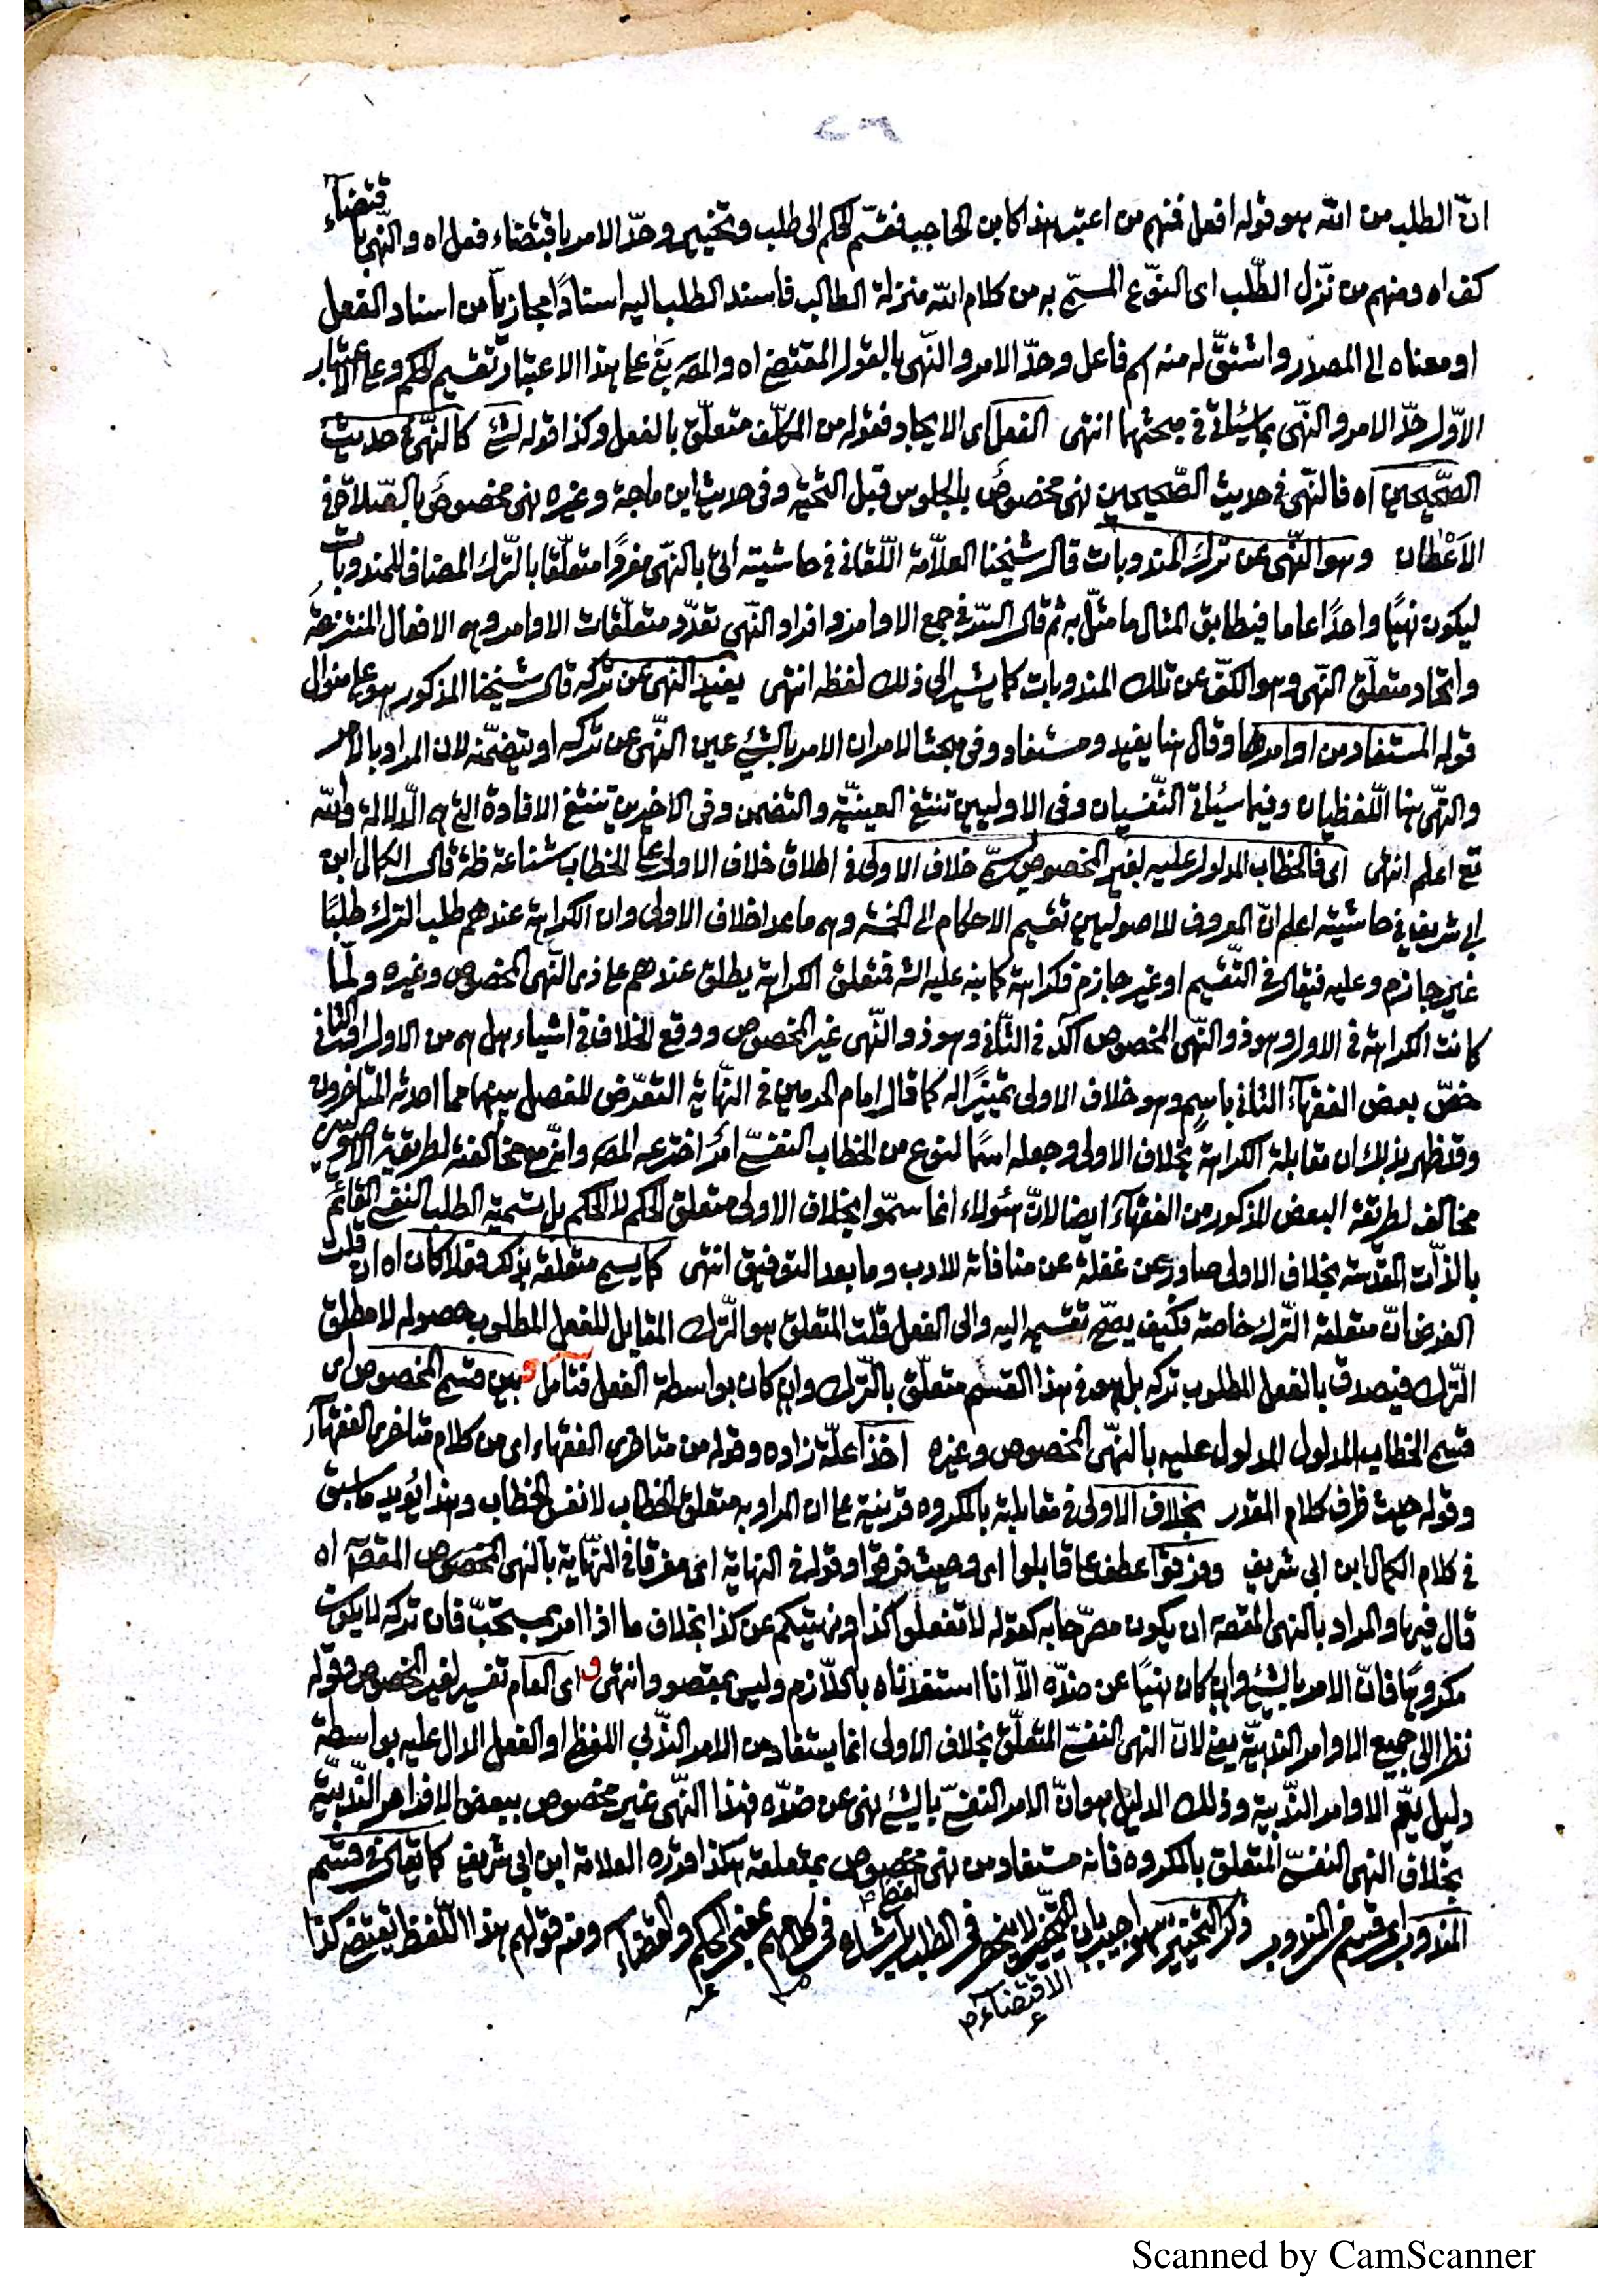 انّ الطلب من الله هو قوله افعل فمنهم من اعتبر هذا كابن الحاجب فقسّم الحكم الى طلب وتخيير وحدّ الامر باقتضاء فعل اه والنّهى باقتضاء
كف اه ومنهم من نزّل الطّلب اى النوّع المسمّى به من كلام الله منزلة الطالب فاسند الطلب اليه اسنادًا مجازيّا من اسناد الفعل
او معناه الى المصدر واشتقّ له منه اسم فاعل وحدّ الامر والنّهى بالقول المقتضى اه والمص بنى على هذا الاعتبار تقسيم الحكم وعلى الاعتبار
الاوّل حدّ الامر والنّهى بما سيأتى فى مبحثهما انتهى الفعل اى الايجاد فقوله من المكلّف متعلّق بالفعل وكذا قوله لشئ كالنّهى فى حديث
الصّحيحين اه فالنّهى فى حديث الصّحيحين نهى مخصوص بالجلوس قبل التّحيّة وفى حديث ابن ماجة وغيره نهى مخصوص بالصّلاة فى
الاَعْطان وهو النّهى عن ترك المندوبات قال شيخنا العلاّمة اللّقانى فى حاشيته اتى بالنّهى مفردًا متعلّقا بالتّرك المضاف للمندوبات
ليكون نهيًا واحدًا عاما فيطابق المثال ما مثّل به ثم قال السّر فى جمع الاوامر وافراد النّهى تعدّد متعلّقات الاوامر وهى الافعال المنتزعة
واتحاد متعلّق النّهى وهو الكفّ عن تلك المندوبات كما يشير الى ذلك لفظه انتهى يفيد النّهى عن تركه قال شيخنا المذكور هو على منوال
قوله المستفاد من اوامرها وقال هنا يفيد ومستفاد وفى مبحث الامر ان الامر بالشئ عين النّهى عن تركه او يتضمّنه لان المراد بالامر
والنّهى هنا اللّفظيان وفيما سيأتى النّفسيان وفى الاوليين تنتفى العينيّة والتضمن وفى الاخيرين تنتفى الافادة التى هى الدّلالة والله
تع اعلم انتهى اى فالخطاب المدلول عليه بغير المخصوص يسمّى خلاف الاولى فى اطلاق خلاف الاولى على الخطاب شناعة ظة قال الكمال ابن
ابى شريف فى حاشيته اعلم انّ المعروف للاصوليين تقسيم الاحكام الى الخمسة وهى ماعدا خلاف الاولى وان الكراهة عندهم طلب الترك طلبًا
غير جازم وعليه فيقال فى التّقسيم او غير جازم فكراهة كما نبه عليه الش فمتعلق الكراهة يطلق عندهم على ذى النّهى المخصوص وغيره ولمّا
كانت الكراهة فى الاول وهو ذو النّهى المخصوص آكد فى الثّانى وهو ذو النّهى غير المخصوص ووقع الخلاف فى اشياء هل هى من الاول او الثانى
خصّ بعض الفقهآء الثانى باسمٍ وهو خلاف الاولى تمييزًا له كما قال امام الحرمين فى النّهاية التعرّض للفصل بينهما مما احدثه المتأخرون
وقد ظهر بذلك ان مقابلة الكراهة بخلاف الاولى وجعله اسمًا لنوع من الخطاب النفسىّ امرٌ اخترعه المص وانّه مع مخالفته لطريقة الاصوليين
مخالف لطريقة البعض المذكور من الفقهآء ايضا لانّ هئولاء انما سمّوا بخلاف الاولى متعلق الحكم لا الحكم بل تسمية الطلب النفسى القائم
بالذّات المقدّسة بخلاف الاولى صادر عن غفلة عن منافاته للادب وما بعد التوفيق انتهى كما يسمى متعلقه بذلك فعلا كان اه ان قلت
الفرض انّ متعلقه التّرك خاصة فكيف يصحّ تقسيمه اليه والى الفعل قلت المتعلق هو التّرك المقابل للفعل المطلوب حصوله لا مطلق
التّرك فيصدق بالفعل المطلوب تركه بل هو فى هذا القسم متعلّق بالتّرك وان كان بواسطة الفعل فتأمل و بين قسم المخصوص اى
قسم الخطاب المدلول المدلول عليه بالنهى المخصوص وغيره اخذًا علّة زاده وقوله من متاخرى الفقهاء اى من كلام متاخرى الفقهآء
وقوله حيث ظرف كلام المقدر بخلاف الاولى فى مقابلته بالمكروه قرينة على ان المراد به متعلق الخطاب لا نفس الخطاب وهذا يؤيد ماسبق
فى كلام الكمال ابن ابى شريف وفرقوا عطف على قابلوا اى وحيث فرقوا وقوله فى النهاية اى مفرقا فى النّهاية بالنهى المخصوص المقصود اه
قال فيها والمراد بالنهى المقصود ان يكون مصرّحا به كقوله لا تفعلوا كذا او نهيتكم عن كذا بخلاف ما اذا امر بمستحبّ فان تركه لا يكون
مكروهًا فانّ الامر بالشئ وان كان نهيًا عن ضدّه الاّ انا استفدناه باللاّزم وليس بمقصود انتهى و اى العام تفسير لغير المخصوص وقوله
نظرا الى جميع الاوامر الندبيّة يعنى لانّ النهى النفسىّ المتعلّق بخلاف الاولى انما يستفاد من الامر النّدبى اللفظى او الفعل الدال عليه بواسطة
دليل يعمّ الاوامر النّدبية وذلك الدليل هو انّ الامر النفسىّ بالشئ نهى عن ضدّه فهذا النّهى غير مخصوص ببعض الاوامر النّدبيّة
بخلاف النهى النفسىّ المتعلق بالمكروه فانه مستفاد من نهى مخصوص بمتعلقه هكذا قرّره العلامة ابن ابى شريف كما يقال فى قسم
المندوب اى قسم من المندوب وذكر التّخيير سهو اجيب بان التّخيير لا ينحصر فى الطلب فى كلامهم بمعنى الحكم والقضاء ومنه قولهم هذا اللّفظ يقتضى كذا
لفظ
الاقتضآء م
Scanned by CamScanner